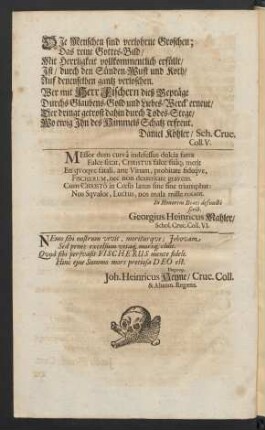 DIe Menschen sind verlohrne Groschen;
Das reine Gottes-Bild/
Mit Herrligkeit vollkommentlich erfüllt/
Ist/ durch den Sünden-Wust und Koth/
Auf denenselben gantz verloschen.
Wer nur Herr Fischern dies Gepräge
Durchs Glaubens-Gold und Liebes-Werck' erneut/
Der dringt getrost dahin durch Todes-Stege/
Wo ewig Ihn des Himmels Schatz erfreut.
Daniel Köhler/ Sch. Cruc.
Coll. V.
MEssor dum curvâ indefessus dulcia farra
Falce secat, CHRISTUS falce suâq; metit
En quoque fatali, ante Virum, probitate fideque,
FISCHERUM, nec non dexteritate gravem.
Cum CHRISTO in Coelo laetus sine fine triumphat:
Non Squalor, Luctus, nos mala mille necant.
In Honorem Beati defuncti
scrib.
Georgius Heinricus Mahler/
Schol. Cruc. Coll. VI.
NEmo sibi nostrum vivit, moriturque: Jehovam,
Sed penes excelsum vitaq; morsq; cluit.
Quod sibi persvasit FISCHERUS mente fideli.
Hinc ejus Summo mors pretiosa DEO est.
Joh. Heinricus Heyne/ Cruc. Coll.
& Alumn. Regens.